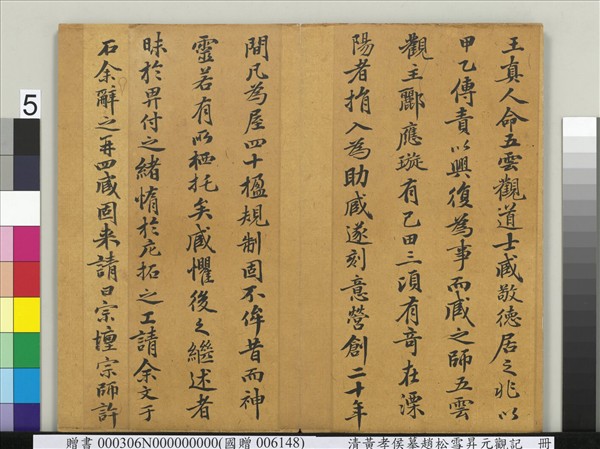 王真人命五雲觀道士臧敬德居之兆以
甲乙傳責以興復為事而臧之師五雲
觀主酈應璇有己田三頃有奇在溧
陽者捐入為助臧遂刻意營創二十年
間凡為屋四十楹規制固不侔昔而神
靈若有所栖托矣臧懼後之繼述者
昧於畀付之緒惰於庀拓之工請余文于
石余辭之再四臧固来請曰宗壇宗師許
5
贈書 000306N000000000(國贈 006148)
清黃孝侯墓趙松雪昇元觀記 冊